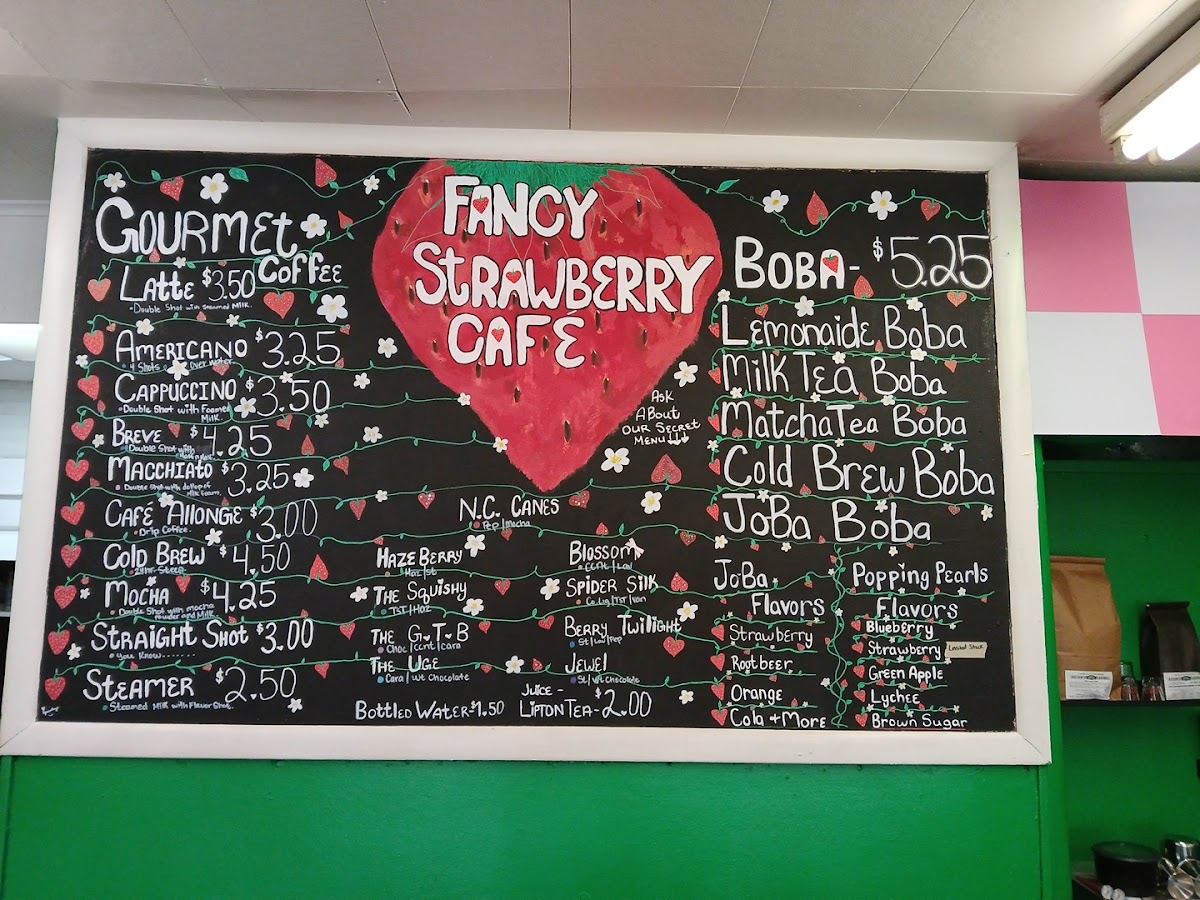 FANCY
STRAWBERRY
CAFÉ
GOURMET
COFFEE
LATTE $3.50
Double Shot with Steamed Milk.
AMERICANO $3.25
4 Shots over water
CAPPUCCINO $3.50
Double Shot with Foamed
Milk.
BREVE $4.25
Double Shot with
MACCHIATO $3.25
Double Shot with dollop of
Milk Foam.
CAFÉ ALLONGE $3.00
Drip Coffee.
COLD BREW $4.50
24hr. Steep
MOCHA $4.25
Double Shot with mocha
Powder and Milk
STRAIGHT SHOT $3.00
You Know.......
STEAMER $2.50
Steamed Milk with Flavor Shot.
ASK
ABOUT
OUR SECRET
MENU
N.C. CANES
Pep/Mocha
HAZE BERRY
Haz/St
THE SQUISHY
TST/Haz
THE G.T.B
Choc/cent/cara
THE UGE
Cara/Wt Chocolate
BLOSSOM
SPIDER SILK
BERRY TWILIGHT
JEWEL
St/Wt Chocolate
BOTTLED WATER-$1.50
JUICE -
LIPTON TEA- $2.00
BOBA- $5.25
Lemonaide Boba
Milk Tea Boba
Matcha Tea Boba
Cold Brew Boba
JoBa Boba
JoBa
Flavors
Strawberry
Rootbeer
Orange
Cola +More
Popping Pearls
Flavors
Blueberry
Strawberry
Green Apple
Lychee
Brown Sugar